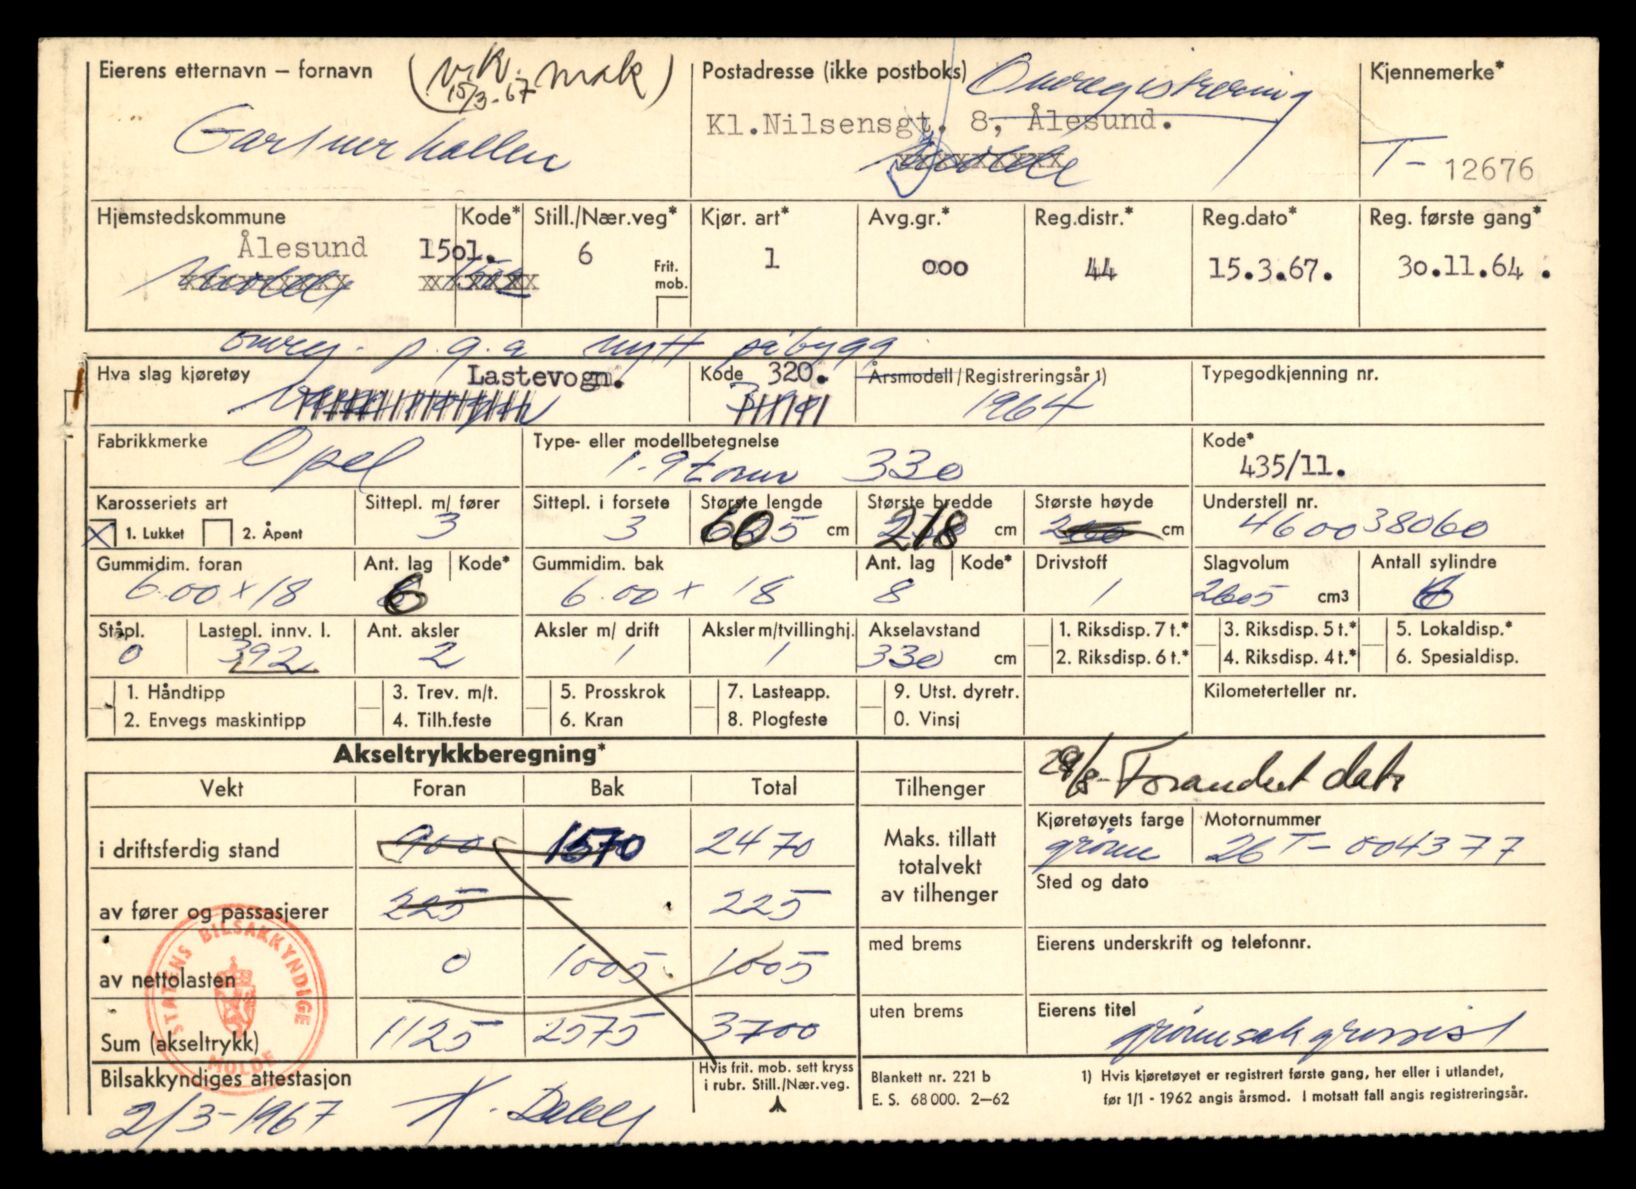 Eierens etternavn – fornavn
(v.k. mak)
15/3-67
Gartnerhallen
Postadresse (ikke postboks)
Omregistrering
Kl.Nilsensgt. 8, Ålesund.
Molde
Kjennemerke*
T- 12676
Hjemstedskommune
Ålesund
Molde
Kode*
1501.
1502
Still./Nær.veg*
6
Frit.
mob.
Kjør. art*
1
Avg.gr.*
000
Reg.distr.*
44
Reg.dato*
15.3.67.
Reg. første gang*
30.11.64.
omreg. p.g.a nytt påbygg.
Hva slag kjøretøy
Lastevogn.
Kode 320.
Årsmodell/Registreringsår 1)
1964
Typegodkjenning nr.
Fabrikkmerke
Opel
Type- eller modellbetegnelse
1.9 tonn 330
Kode*
435/11.
Karosseriets art
1. Lukket 2. Åpent
Sittepl. m/ fører
3
Sittepl. i forsete
3
Største lengde
605 cm
Største bredde
218 cm
Største høyde
200 cm
Understell nr.
460038060
Gummidim. foran
6.00 x 18
Ant. lag
6
Kode*
Gummidim. bak
6.00 x 18
Ant. lag
8
Kode*
Drivstoff
1
Slagvolum
2605 cm3
Antall sylindre
6
Ståpl.
0
Lastepl. innv. l.
392
Ant. aksler
2
Aksler m/ drift
1
Aksler m/tvillinghj.
1
Akselavstand
330 cm
1. Riksdisp. 7 t.*
2. Riksdisp. 6 t.*
3. Riksdisp. 5 t.*
4. Riksdisp. 4 t.*
5. Lokaldisp.*
6. Spesialdisp.
1. Håndtipp
2. Envegs maskintipp
3. Trev. m/t.
4. Tilh.feste
5. Prosskrok
6. Kran
7. Lasteapp.
8. Plogfeste
9. Utst. dyretr.
0. Vinsj
Kilometerteller nr.
Akseltrykkberegning*
Vekt Foran Bak Total
i driftsferdig stand 900 1570 2470
av fører og passasjerer 225 225
av nettolasten 0 1005 1005
Sum (akseltrykk) 1125 2575 3700
Tilhenger
Maks. tillatt
totalvekt
av tilhenger
med brems
uten brems
Forandret data
Kjøretøyets farge
grønn
Motornummer
26T-004377
Sted og dato
Eierens underskrift og telefonnr.
Eierens titel
grønnsakgrossist
STATENS BILSAKKYNDIGE
MOLDE
Bilsakkyndiges attestasjon
2/3-1967
Hvis frit. mob. sett kryss
i rubr. Still./Nær.veg.
Blankett nr. 221 b
E. S. 68 000. 2–62
1) Hvis kjøretøyet er registrert første gang, her eller i utlandet,
før 1/1 - 1962 angis årsmod. I motsatt fall angis registreringsår.